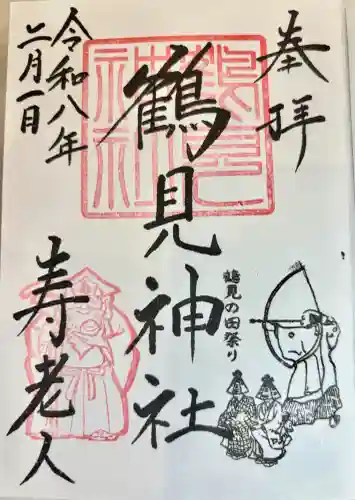 奉拝
鶴見神社
鶴見の田祭り
令和八年
二月一日
寿老人
鶴見
神社